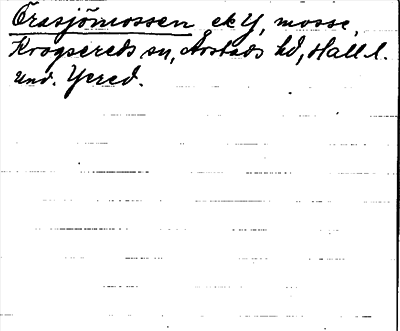 Trasjömossen ek Y, mosse,
Krogsereds sn, Årstads hd, Hall l.
und. Yered.